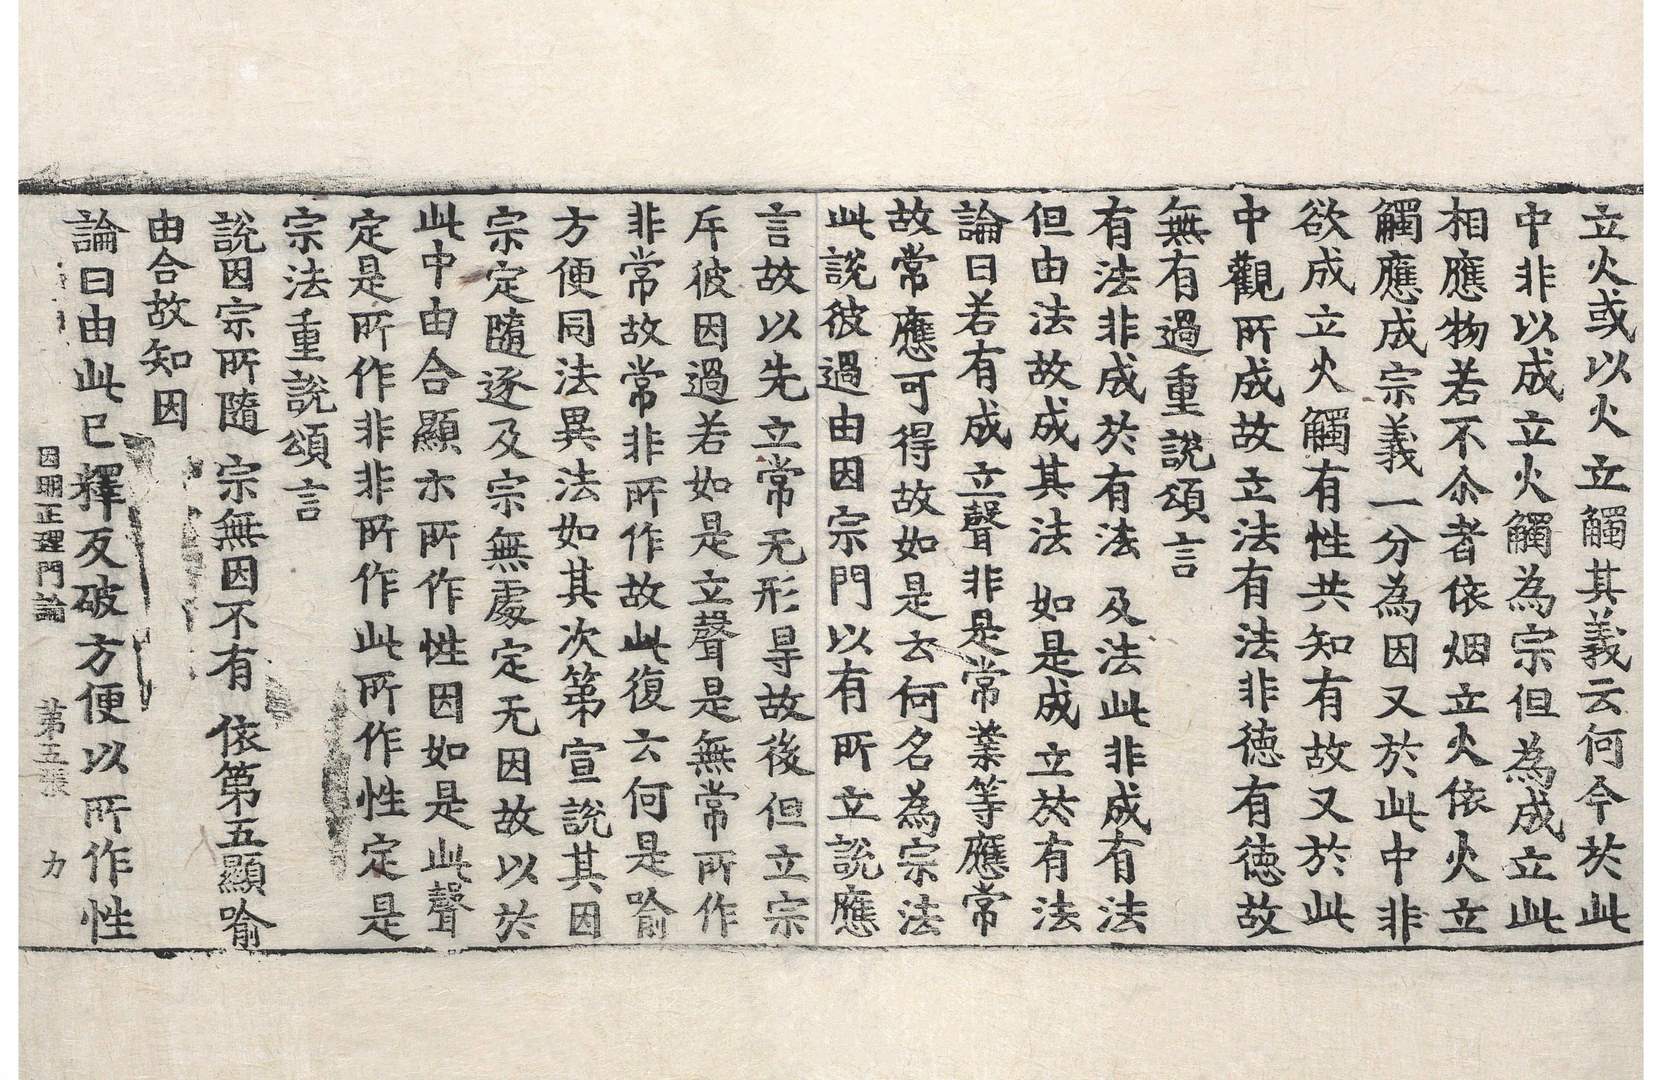 立火或以火立觸其義云何今於此
中非以成立火觸為宗但為成立此
相應物若不尒者依烟立火依火立
觸應成宗義一分為因又於此中非
欲成立火觸有性共知有故又於此
中觀所成故立法有法非德有德故
無有過重說頌言
有法非成於有法 及法此非成有法
但由法故成其法 如是成立於有法
論曰若有成立聲非是常業等應常
故常應可得故如是云何名為宗法
此說彼過由因宗門以有所立說應
言故以先立常无形㝵故後但立宗
斥彼因過若如是立聲是無常所作
非常故常非所作故此復云何是喻
方便同法異法如其次第宣說其因
宗定隨逐及宗無處定无因故以於
此中由合顯示所作性因如是此聲
定是所作非非所作此所作性定是
宗法重說頌言
說因宗所隨 宗無因不有 依第五顯喻
由合故知因
論曰由此已釋反破方便以所作性
因明正理門論 第五張 力